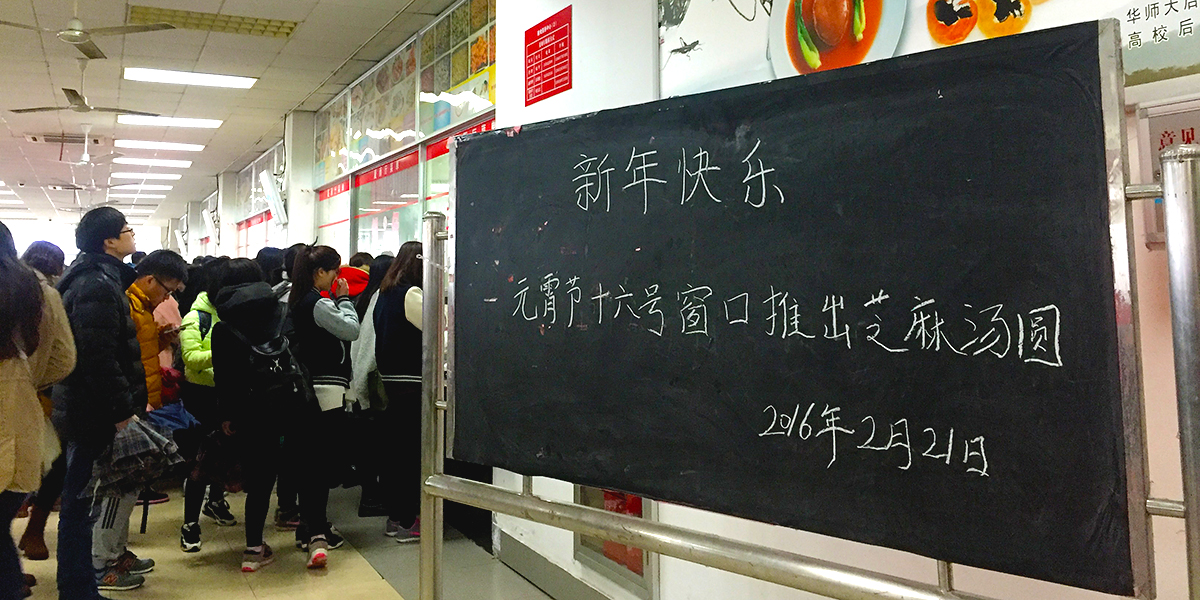 新年快乐
元霄节十六号窗口推出芝麻汤圆
2016年2月21日
华师大后
高校后
意见